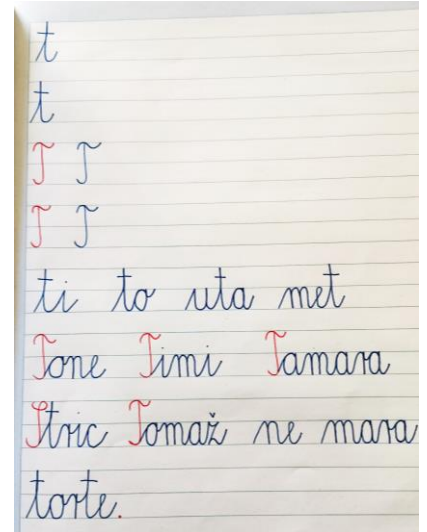 t
t
T T
T T
ti to uta met
Tone Timi Tamara
Stric Tomaž ne mara
torte.